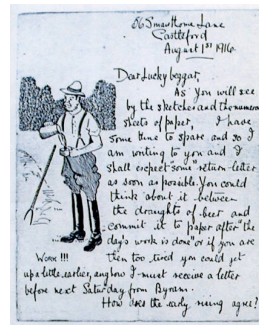 56 Smawthorne Lane
Castleford
August 1st 1916.
Dear Lucky beggar,
As you will see
by the sketches and the numerous
sheets of paper, I have
some time to spare and so I
am writing to you and I
shall expect some "return-letter
as soon as possible. You could
think about it between
the draughts of beer and
commit it to paper after "the
day's work is done" or if you are
then too tired you could get
up a little earlier, anyhow I must receive a letter
before next Saturday from Byram.
How does the early rising agree?
WORK !!!